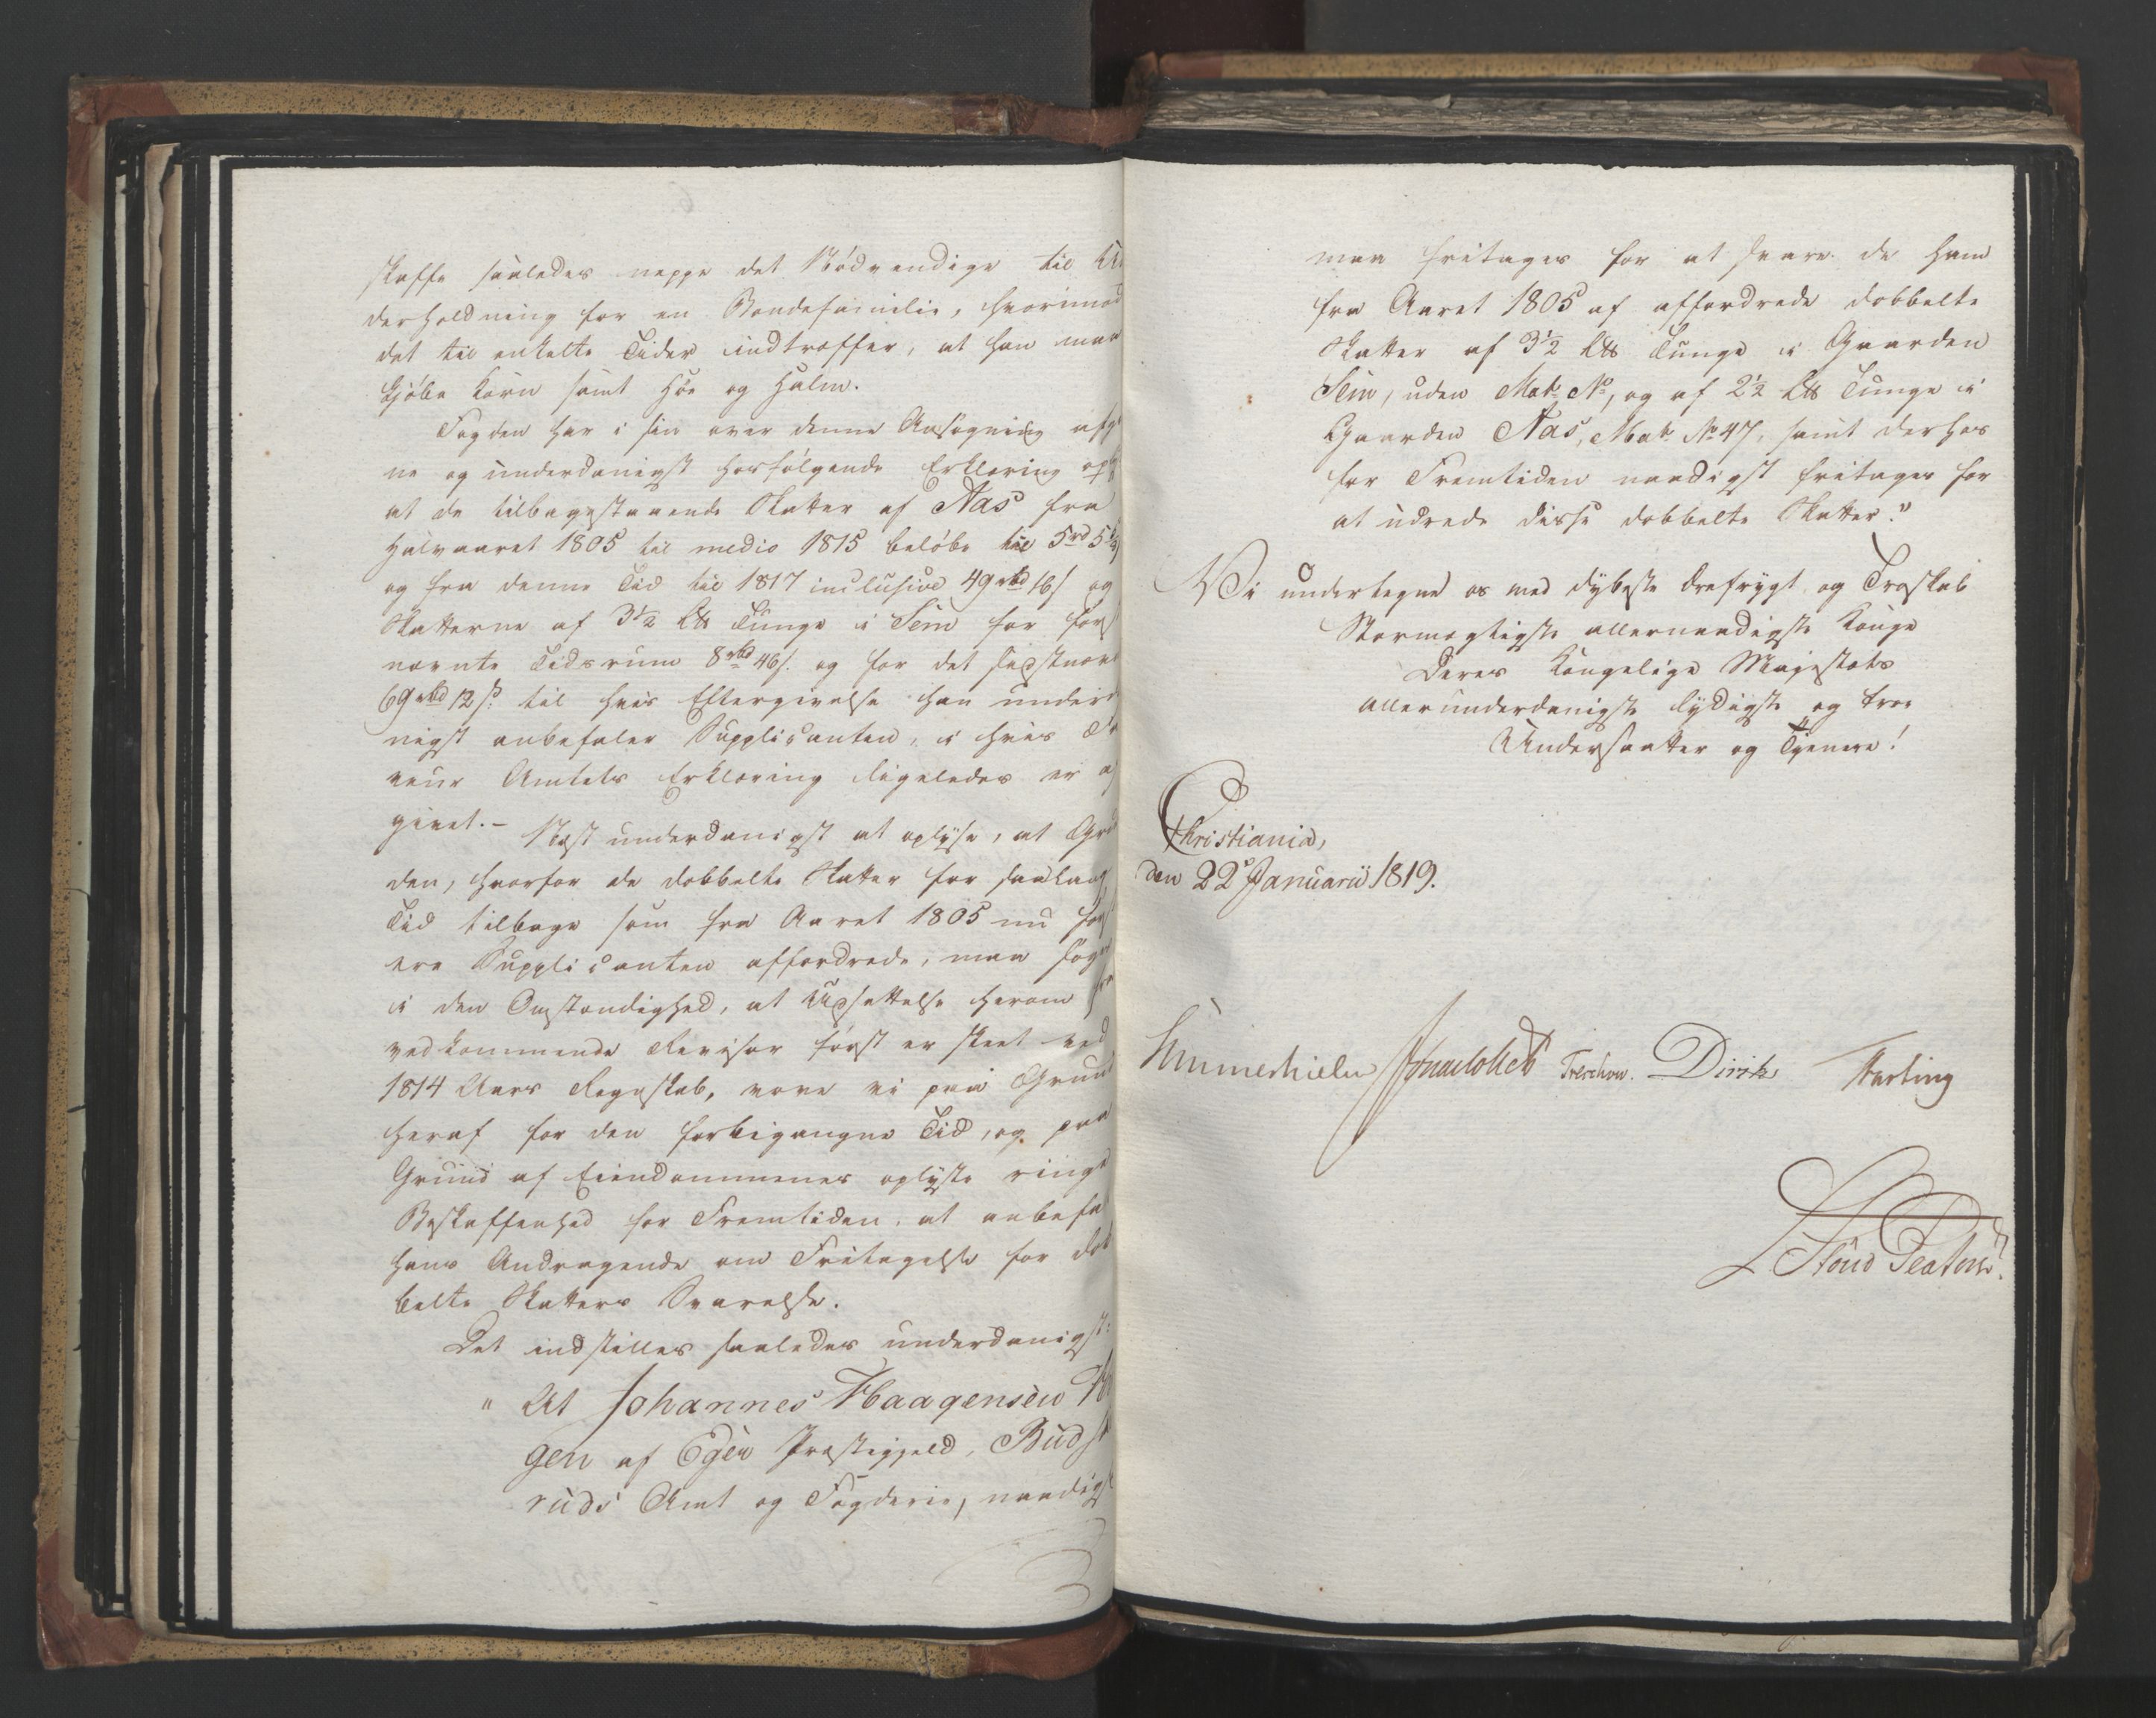 skaffe saaledes neppe det Nödvendige til Un
derholdning for en Bondefamilie, hvorimod
det til enkelte Tider indtræffer, at han maa
kjöbe Korn samt Höe og Halm.
Fogden har i sin over denne Ansögning afgi
ne og underdanigst hosfölgende Erklæring opl
at de tilbagestaaende Skatter af Næs fra
Halvaaret 1805 til medio 1815 belöbe til 5rd 5
og fra denne Tid til 1817 inclusive 49 rbd 16 s og
Skatterne af 3½ L℔ Tunge i Sem for först
nævnte Tidsrum 8 rbd 46 s. og for det sidstnæv
69 rbd 12 s. til hvis Eftergivelse han underda
nigst anbefaler Supplicanten, i hvis Fa
veur Amtets Erklæring ligeledes er af
givet.-
Næst underdanigst at oplyse, at Gru
den, hvorfor de dobbelte Skatter for saa lang
Tid tilbage som fra Aaret 1805 nu först
ere Supplicanten affordrede, maa söges
i den Omstændighed, at Udsættelse herom fra
vedkommende Revisor först er skeet ved
1814 Aars Regnskab, vove vi paa Grund
heraf for den forbigangne Tid, og paa
Grund af Eiendommenes oplyste ringe
Beskaffenhed for Fremtiden, at anbefale
hans Andragende om Fritagelse for dob
belte Skatters Svarelse.
Det indstilles saaledes underdanigst:
" At Johannes Haagensen
gen af Eger Præstegjeld, Budske
ruds Amt og Fogderie, naadigst
maa fritages for at svare de ham
fra Aaret 1805 af affordrede dobbelte
Skatter af 3½ L℔ Tunge i Gaarden
Sem, uden Mat: No, og af 2½ L℔ Tunge i
Gaarden Næs, Mat: No 47, samt derhos
for Fremtiden naadigst fritages for
at udrede disse dobbelte Skatter."
Vi undertegne os med dybeste Ærefrygt og Troskab
Stormægtigste allernaadigste Konge
Deres Kongelige Majestæts
allerunderdanigste lydigste og troe
Undersaatter og Tjenere!
Christiania,
den 22de Januarii 1819.
Sommerhielm Treschow. Diriks Harting